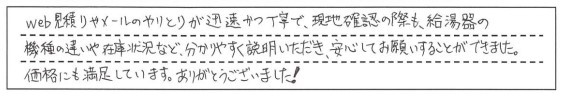 web見積りやメールのやりとりが迅速かつ丁寧で、現地確認の際も、給湯器の
機種の違いや在庫状況など、分かりやすく説明いただき、安心してお願いすることができました。
価格にも満足しています。ありがとうございました!